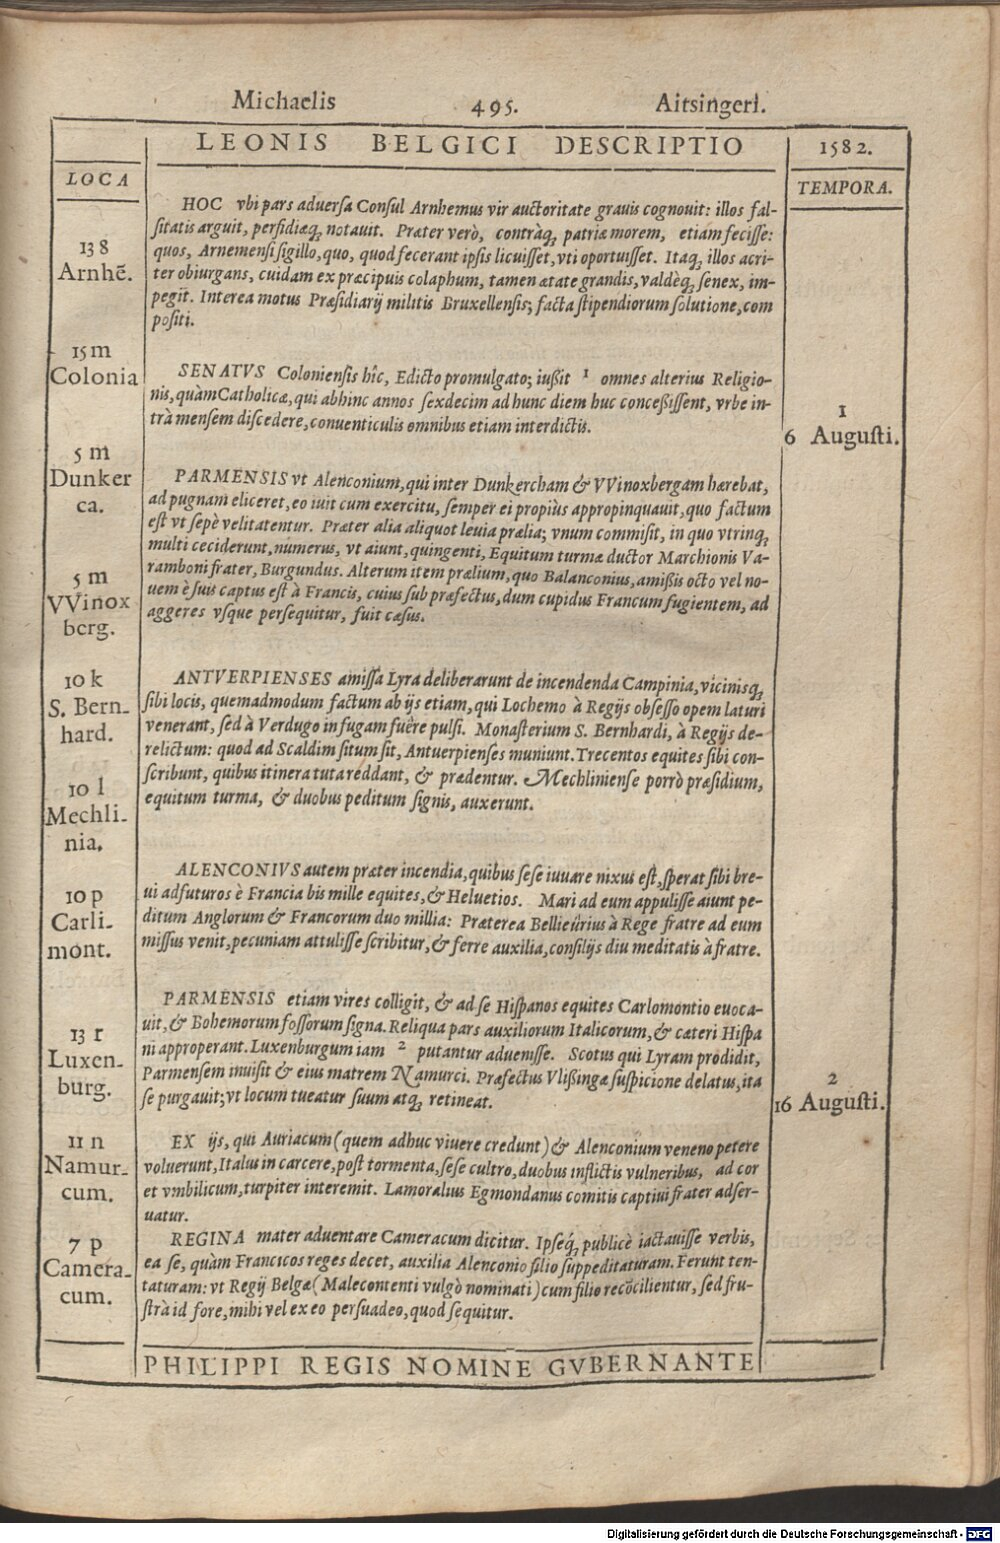 Michaelis 495. Aitsingeri.
LEONIS BELGICI DESCRIPTIO
1582.
LOCA
TEMPORA.
HOC vbi pars aduersa Consul Arnhemus vir auctoritate grauis cognouit: illos fal-
sitatis arguit, perfidiæq́; notauit. Præter verò, contràq́; patriæ morem, etiam fecisse:
quos, Arnemensi sigillo, quo, quod fecerant ipsis licuisset, vti oportuisset. Itaq́; illos acri-
ter obiurgans, cuidam ex præcipuis colaphum, tamen ætate grandis, valdèq́; senex, im-
pegit. Interea motus Præsidiarij militis Bruxellensis; facta stipendiorum solutione, com
positi.
13 8
Arnhē.
15 m
Colonia
SENATVS Coloniensis hîc, Edicto promulgato; iußit 1 omnes alterius Religio-
nis, quàm Catholicæ, qui abhinc annos sexdecim ad hunc diem huc conceßissent, vrbe in-
trà mensem discedere, conuenticulis omnibus etiam interdictis.
1
6 Augusti.
5 m
Dunker
ca.
PARMENSIS vt Alenconium, qui inter Dunkercham & VVinoxbergam hærebat,
ad pugnam eliceret, eo iuit cum exercitu, semper ei propiùs appropinquauit, quo factum
est vt sepè velitatentur. Præter alia aliquot leuia prælia; vnum commisit, in quo vtrinq́;
multi ceciderunt, numerus, vt aiunt, quingenti, Equitum turmæ ductor Marchionis Va-
ramboni frater, Burgundus. Alterum item prælium, quo Balanconius, amißis octo vel no-
uem è suis captus est à Francis, cuius sub præfectus, dum cupidus Francum fugientem, ad
aggeres vsque persequitur, fuit cæsus.
5 m
VVinox
berg.
10 k
S. Bern-
hard.
ANTVERPIENSES amissa Lyra deliberarunt de incendenda Campinia, vicinisq́;
sibi locis, quemadmodum factum ab ijs etiam, qui Lochemo à Regijs obsesso opem laturi
venerant, sed à Verdugo in fugam fuêre pulsi. Monasterium S. Bernhardi, à Regijs de-
relictum: quod ad Scaldim situm sit, Antuerpienses muniunt. Trecentos equites sibi con-
scribunt, quibus itinera tuta reddant, & prædentur. Mechliniense porrò præsidium,
equitum turma, & duobus peditum signis, auxerunt.
10 l
Mechli-
nia.
10 p
Carli-
mont.
ALENCONIVS autem præter incendia, quibus sese iuuare nixus est, sperat sibi bre-
ui adfuturos è Francia bis mille equites, & Heluetios. Mari ad eum appulisse aiunt pe-
ditum Anglorum & Francorum duo millia: Præterea Bellieurius à Rege fratre ad eum
missus venit, pecuniam attulisse scribitur, & ferre auxilia, consilijs diu meditatis à fratre.
PARMENSIS etiam vires colligit, & ad se Hispanos equites Carlomontio euoca-
uit, & Bohemorum fossorum signa. Reliqua pars auxiliorum Italicorum, & cæteri Hispa
ni approperant. Luxenburgum iam 2 putantur aduenisse. Scotus qui Lyram prodidit,
Parmensem inuisit & eius matrem Namurci. Præfectus Vlißingæ suspicione delatus, ita
se purgauit; vt locum tueatur suum atq́; retineat.
13 r
Luxen-
burg.
2
16 Augusti.
11 n
Namur-
cum.
EX ijs, qui Auriacum (quem adhuc viuere credunt) & Alenconium veneno petere
voluerunt, Italus in carcere, post tormenta, sese cultro, duobus inflictis vulneribus, ad cor
et vmbilicum, turpiter interemit. Lamoralius Egmondanus comitis captiui frater adser-
uatur.
7 p
Camera-
cum.
REGINA mater aduentare Cameracum dicitur. Ipseq́; publicè iactauisse verbis,
ea se, quàm Francicos reges decet, auxilia Alenconio filio suppeditaturam. Ferunt ten-
taturam: vt Regij Belgæ (Malecontenti vulgò nominati) cum filio recōcilientur, sed fru-
strà id fore, mihi vel ex eo persuadeo, quod sequitur.
PHILIPPI REGIS NOMINE GVBERNANTE
Digitalisierung gefördert durch die Deutsche Forschungsgemeinschaft - DFG